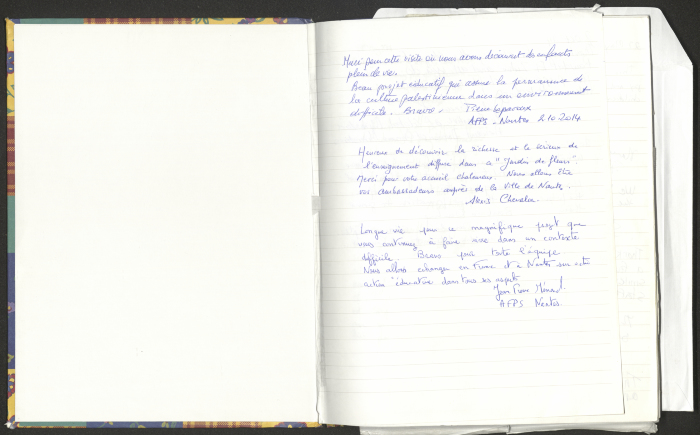 Merci pour cette visite où nous avons découvert des enfants
plein de vies
Beau projet éducatif qui assure la permanence de
la culture palestinienne dans un environnement
difficile. Bravo. Pierre
AFPS - Nantes 2 10 2014
Heureux de découvrir la richesse et le sérieux de
l'enseignement diffusé dans ce "Jardin de fleurs".
Merci pour votre accueil chaleureux. Nous allons être
vos ambassadeurs auprès de la Ville de Nantes.
Alexis Chevalier
Longue vie pour ce magnifique projet que
vous continuez à faire vivre dans un contexte
difficile. Bravo pour toute l'équipe
Nous allons échanger en France et à Nantes sur cette
action éducative dans tous ses aspects
Jean Pierre Ménard
AFPS Nantes.